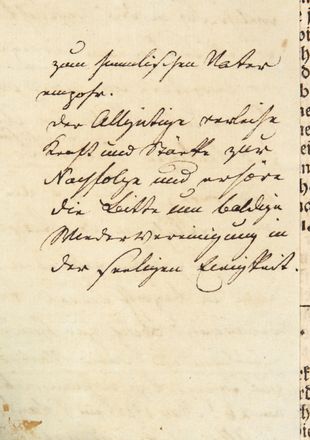 zum himmlischen Vater
empohr.
Der Allgütige verleihe
Kraft und Stärke zur
Nachfolge und erhöre
die Bitte um baldige
Wiedervereinigung in
der seeligen Ewigkeit.